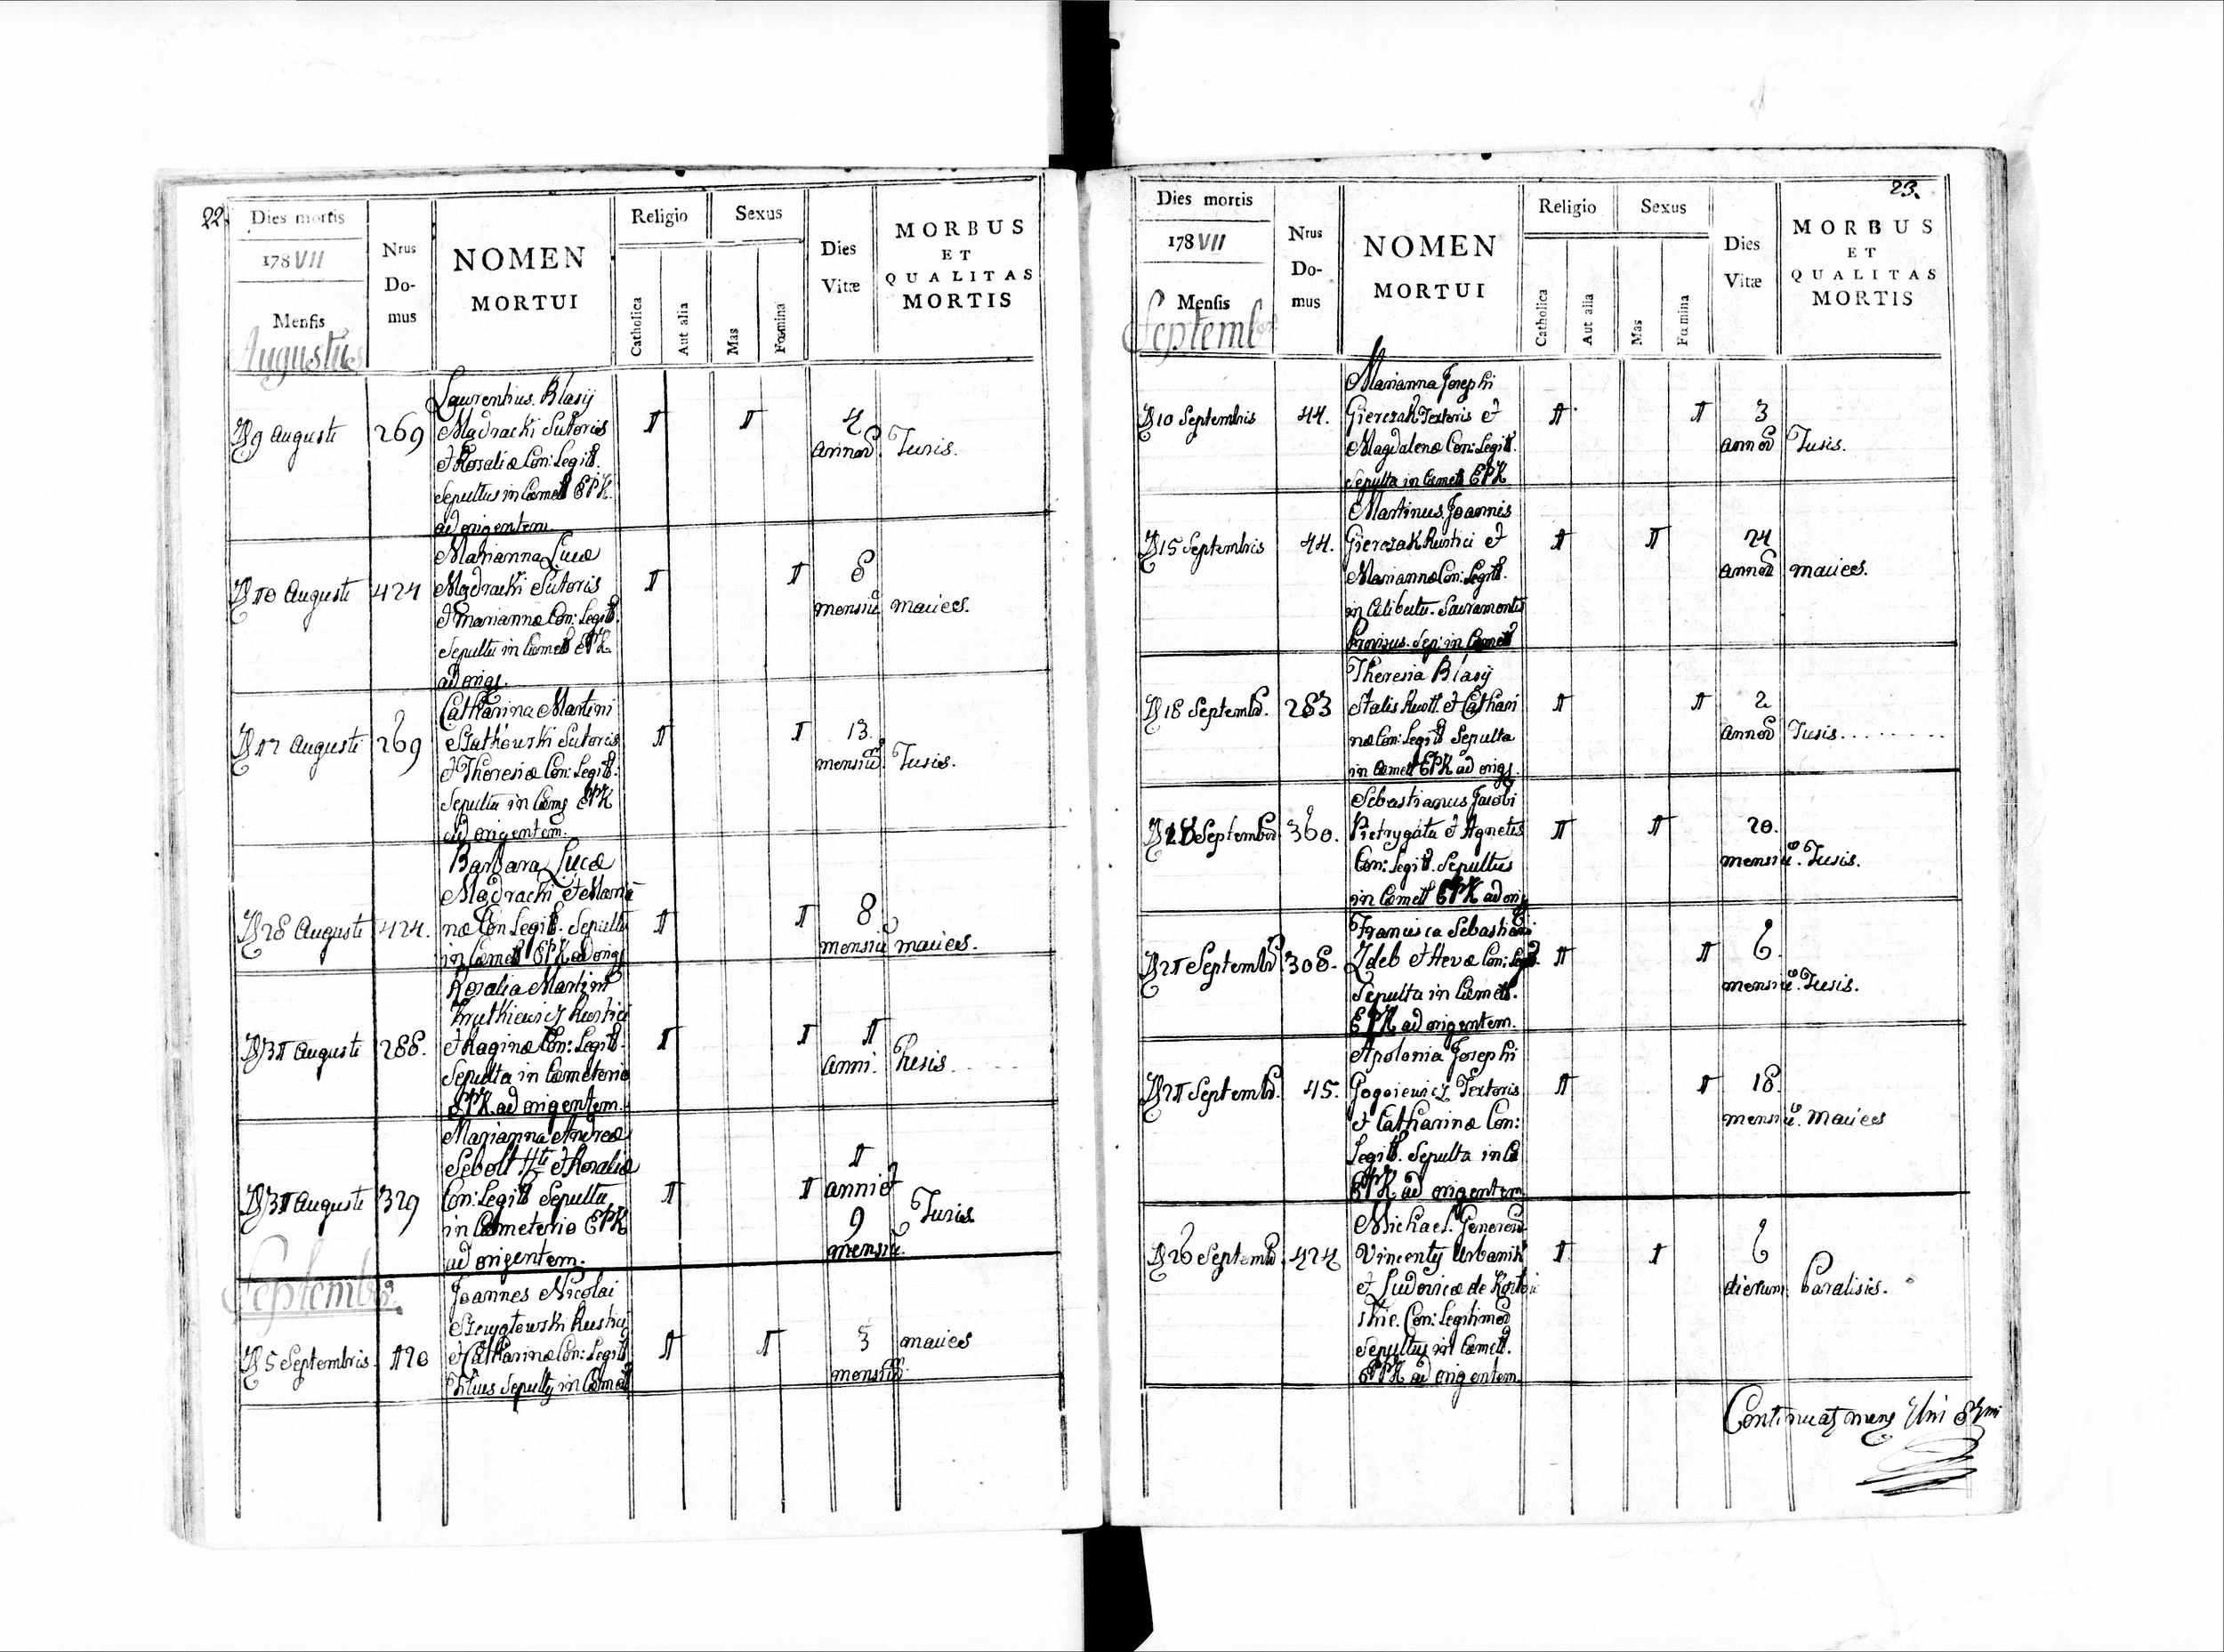 22.
Dies mortis
178VII
Mensis
Augustus
Nrus
Do-
mus
NOMEN
MORTUI
Religio
Catholica
Aut alia
Sexus
Mas
Fœmina
Dies
Vitæ
MORBUS
ET
QUALITAS
MORTIS
D 9 Augusti
269
Laurentius Blasij
Madracki Sutoris
et Rosaliæ Con: Legit.
Sepultus in Cœmet EPK
ad origentem
1
1
4
annor
Tusis.
D 10 Augusti
424
Marianna Lucæ
Madracki Sutoris
et Mariannæ Con: Legit.
Sepulta in Cœmet EPK
ad orige.
1
1
8
mensiu
macies.
D 12 Augusti
269
Catharina Martini
Sutoris
et Theresiæ Con: Legit:
Sepulta in Cœme EPK
ad origentem.
1
1
13.
mensiu
Tusis.
D 28 Augusti
424.
Barbara Lucæ
Madracki et Marian
næ Con Legit. Sepulta
in Cœmet EPK ad orige
1
1
8
mensiu
macies.
D 31 Augusti
288.
Rosalia Martini
Rustici
et Raginæ Con: Legit.
Sepulta in Cœmeterio
EPK ad origentem.
1
1
1
anni.
D 31 Augusti
329
Marianna Andreæ
Sebolt et Rosaliæ
Con: Legit Sepulta
in Cœmeterio EPK
ad origentem.
1
1
1
anni et
9
mensiu.
Tusis
Septembr.
D 5 Septembris
120
Joannes Nicolai
Rustici
et Catharinæ Con: Legit
Filius in Cœmet
1
1
3
mensiu.
macies
23.
Dies mortis
178VII
Mensis
Septembr
Nrus
Do-
mus
NOMEN
MORTUI
Religio
Catholica
Aut alia
Sexus
Mas
Fœmina
Dies
Vitæ
MORBUS
ET
QUALITAS
MORTIS
D 10 Septembris
44.
Marianna Josephi
Gierczak Textoris et
Magdalenæ Con: Legit.
Sepulta in Cœmet EPK
1
1
3
annor
Tusis.
D 15 Septembris
44.
Martinus Joannis
Gierczak Rustici et
Mariannæ Con: Legit.
in Cælibatu. Sacramentis
Provisus. Sep: in Cœmet
1
1
24
annor
macies.
D 18 Septembr.
283
Theresia Blasij
Stalis Rust. et Cathari
næ Con: Legit Sepulta
in Cœmet EPK ad orige.
1
1
2
annor
Tusis........
D 18 Septembr
360.
Sebastianus Jacobi
Pietrygata et Agnetis
Con: Legit. Sepultus
in Cœmet EPK ad orig
1
1
20.
mensiu. Tusis.
D 21 Septembr
308.
Francisca Sebastiani
Zdeb et Hevæ Con: Legit.
Sepulta in Cœmet.
EPK ad origentem.
1
1
6.
mensiu. Tusis.
D 21 Septembr.
45.
Apolonia Josephi
Textoris
et Catharinæ Con:
Legit. Sepulta in Cœ
EPK ad origentem
1
1
18.
mensiu. Macies
D 26 Septembr
424
Michael. Generos
Vincentij Urbanik
et Ludovicæ de
Con: Legitimor
Sepultus in Cœmet.
EPK ad origentem
1
1
6
dierum
Paralisis.